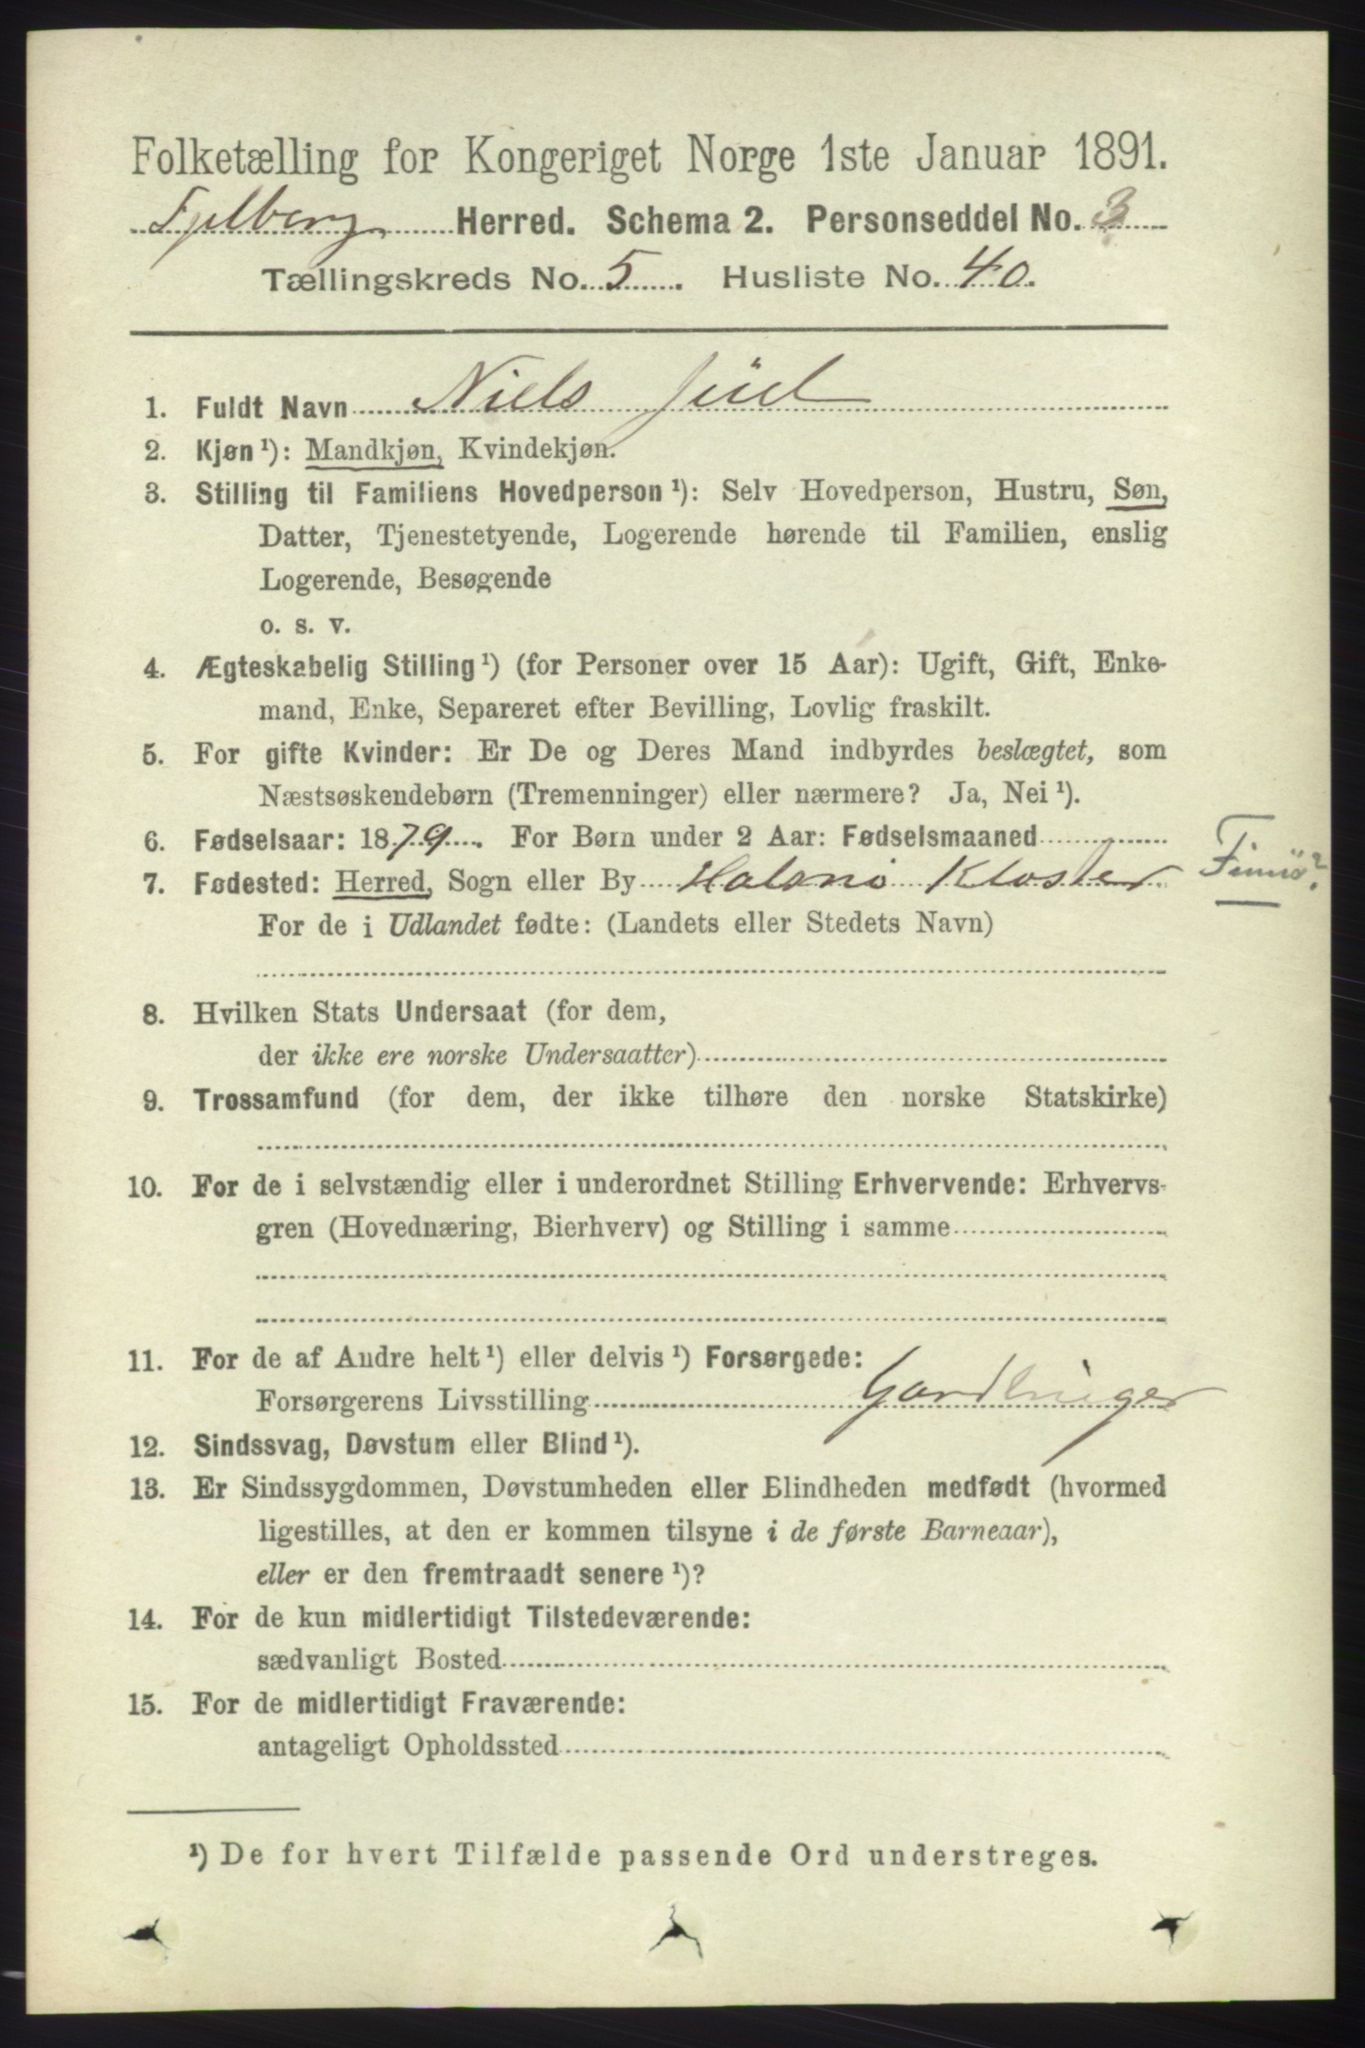 Folketælling for Kongeriget Norge 1ste Januar 1891.
Fjelberg Herred. Schema 2. Personseddel No. 3
Tællingskreds No. 5. Husliste No. 40.
1. Fuldt Navn Niels Juel
2. Kjøn ¹): Mandkjøn, Kvindekjøn.
3. Stilling til Familiens Hovedperson ¹): Selv Hovedperson, Hustru, Søn,
Datter, Tjenestetyende, Logerende hørende til Familien, enslig
Logerende, Besøgende
o. s. v.
4. Ægteskabelig Stilling ¹) (for Personer over 15 Aar): Ugift, Gift, Enke-
mand, Enke, Separeret efter Bevilling, Lovlig fraskilt.
5. For gifte Kvinder: Er De og Deres Mand indbyrdes beslægtet, som
Næstsøskendebørn (Tremenninger) eller nærmere? Ja, Nei ¹).
6. Fødselsaar: 1879. For Børn under 2 Aar: Fødselsmaaned
7. Fødested: Herred, Sogn eller By Halsnø Kloster
For de i Udlandet fødte: (Landets eller Stedets Navn)
8. Hvilken Stats Undersaat (for dem,
der ikke ere norske Undersaatter)
9. Trossamfund (for dem, der ikke tilhøre den norske Statskirke)
10. For de i selvstændig eller i underordnet Stilling Erhvervende: Erhvervs-
gren (Hovednæring, Bierhverv) og Stilling i samme
11. For de af Andre helt ¹) eller delvis ¹) Forsørgede:
Forsørgerens Livsstilling Gardbruger
12. Sindssvag, Døvstum eller Blind ¹).
13. Er Sindssygdommen, Døvstumheden eller Blindheden medfødt (hvormed
ligestilles, at den er kommen tilsyne i de første Barneaar),
eller er den fremtraadt senere ¹)?
14. For de kun midlertidigt Tilstedeværende:
sædvanligt Bosted
15. For de midlertidigt Fraværende:
antageligt Opholdssted
¹) De for hvert Tilfælde passende Ord understreges.